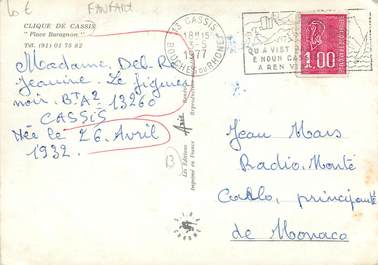 40 €
FANFARE
CLIQUE DE CASSIS
"Place Baragnon"
Tél. (91) 01 75 82
Madame, Deb. R
Jeanine. Le figuier
noir. BTA2 13260
CASSIS
Née le 26 Avril
1932.
13 CASSIS
18H15
3-5
1977
BOUCHES DU RHONE
QU A VIST
E NOUN CA
A REN V
1.00
Les Editions
Imprimé en France
B
Jean Mars
Radio, Monté
Carlo, principauté
de Monaco